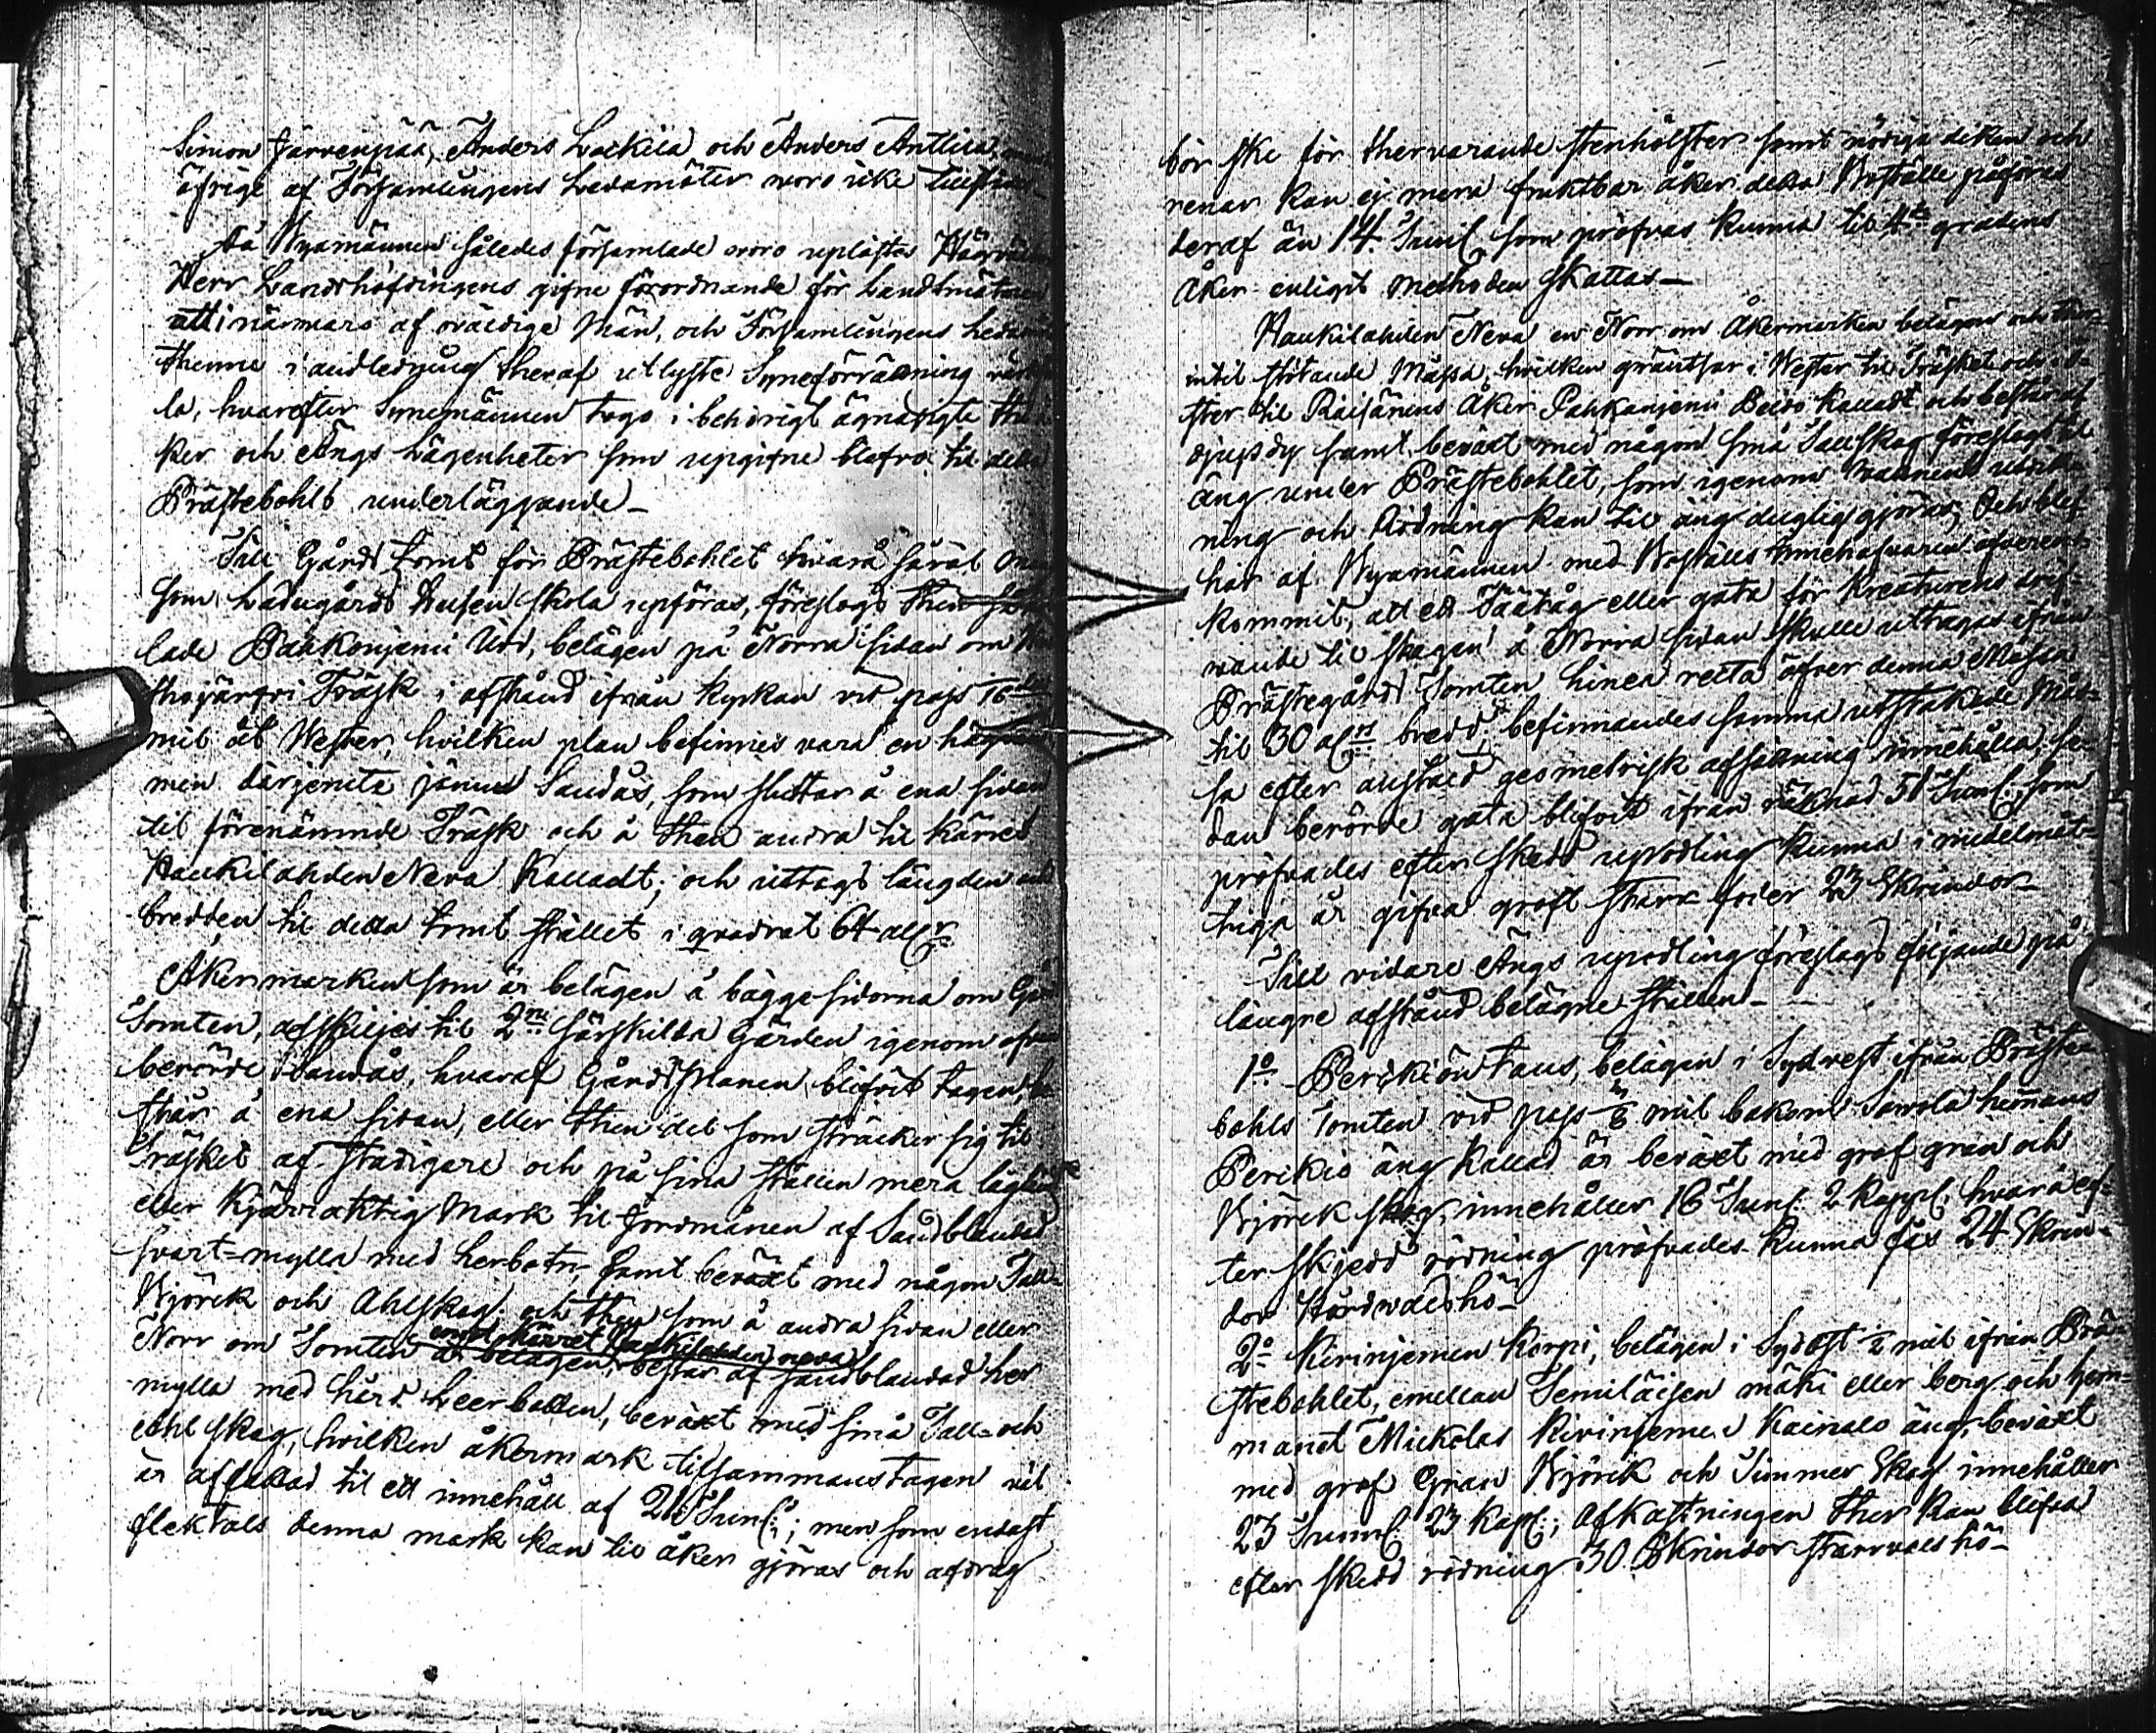 Simon Järvenpää, Anders Lackila och Anders Anttila,
öfrige af Församlingens Ledamöter woro icke tillstädes
Då Wyamännen således församlade woro uplästes
Herr Landshöfdingens gifne förordnande för Landtmätaren
att i närwaro af owäldige Män, och Församlingens
thenne i andledning theraf utlyste Syneförrättning
la, hwarefter Synemännen togo i behörigt ögnasigte
ker och Ängs Lägenheter som upgifne blefvo til detta
Prästebohls underläggande_
Till Gårds tomt för Prästebohlet hwarå såväl
som Ladugårds Husen skola upföras, föreslogs then
lade Pahkanjemi Udd, belägen på Norra sidan om
thojärfvi Träsk i afstånd ifrån kyrkan vid pass 16
mil åt Wester, hvilken plan befinnes vara en
men därjemte jämnd Sandås, som sluttar å ena sidan
til förenämnde Träsk och å then andra til kärret
Haukilahden Neva Kalladt; och uttogs längden och
bredden til detta tomt stället i qvadrat 64 alnr
Åkermarken som är belägen å bägge sidorna om
Tomten, afskiljes til 2ne särskilda Gärden igenom
berörde Sandås, hvaraf Gårdsplanen blifvit tagen,
står å ena sidan, eller then del som sträcker sig til
Träsket af stadigare och på sina ställen mera
eller Kjärraktig Mark til Jordmånen af Sandblandad
svart-mylla med lerbotn, samt beväxt med någon Tall-
Björck och Ahlskog, och then som å andra sidan eller
emot kärret Haukilahden neva
Norr om Tomten är belägen, består af sandblandad
mylla med hård Leerbotten, beväxt med små Tall- och
ahl skog, hvilken åkermark tilsammanstagen
är affattad til ett innehåll af 26 Tunl:; men som endast
flektals denna mark kan til åker gjöras och afdrag
bör ske för thervarande stenholster samt nödiga diken och
renar kan ej mera fruktbar åker detta Boställe påföras
deraf än 14 Tunl, som pröfvas kunna til 4de gradens
Åker enligit Methoden Skattas_
Haukilahden Neva en Norr om Åkermarken belägen och
intil stötande Måssa, hvilken gräntsar i Wester til Träsket och
ster til Räisänens Åker Pahkanjemi Peldo kallad och består af
djup dy samt beväxt med någon små Tallskog föreslogs til
äng under Prästebohlet, som igenom vattnets utdik-
ning och Rödning kan til äng duglig gjöras; Och blef
här af Wyamännen med Boställs Innehafvaren öfverens-
kommit, att ett Täätåg eller gata för Kreaturens drif-
vande til skogen å Norra sidan skulle uttagas ifrån
Prästegårds Tomten linea recta öfver denna Måssa
til 30 alnrs bredd; befinnandes samma utstakade Mås-
sa efter anstäld geometrisk afmätning innehålla, se-
dan berörde gata blifvit ifrån räknad 51 Tunl: som
pröfvades efter skedd upodling kunna i medelmåt-
tiga år gifva groft starr foder 23 Skrindor_
Till vidare Ängs upodling föreslogs följande på
längre afstånd belägne ställen_
1o Perikiön taus, belägen i Sydvest ifrån Präste-
bohls tomten vid pass 1/8 mil bakom Jamola hemmans
Perikiö äng Kallad är beväxt med grof gran och
Björck skog, innehåller 16 Tunl: 2 Kappl. hvarå ef-
ter skjedd rödning pröfvades kunna fås 24 Skrin-
dor Hårdvalls hö_
2o Kirinjemen Korpi, belägen i Sydost 1/2 mil ifrån Prä-
stebohlet, emellan Semiläisen mäki eller berg och hem-
manet Mickolas Kirinjemi Kainalo äng, beväxt
med grof Gran Björck och Timmer Skog innehåller
23 Tunnl: 23 Kapl:; afkastningen ther kan blifva
efter skedd rödning 30 Skrindor starrvalls hö_